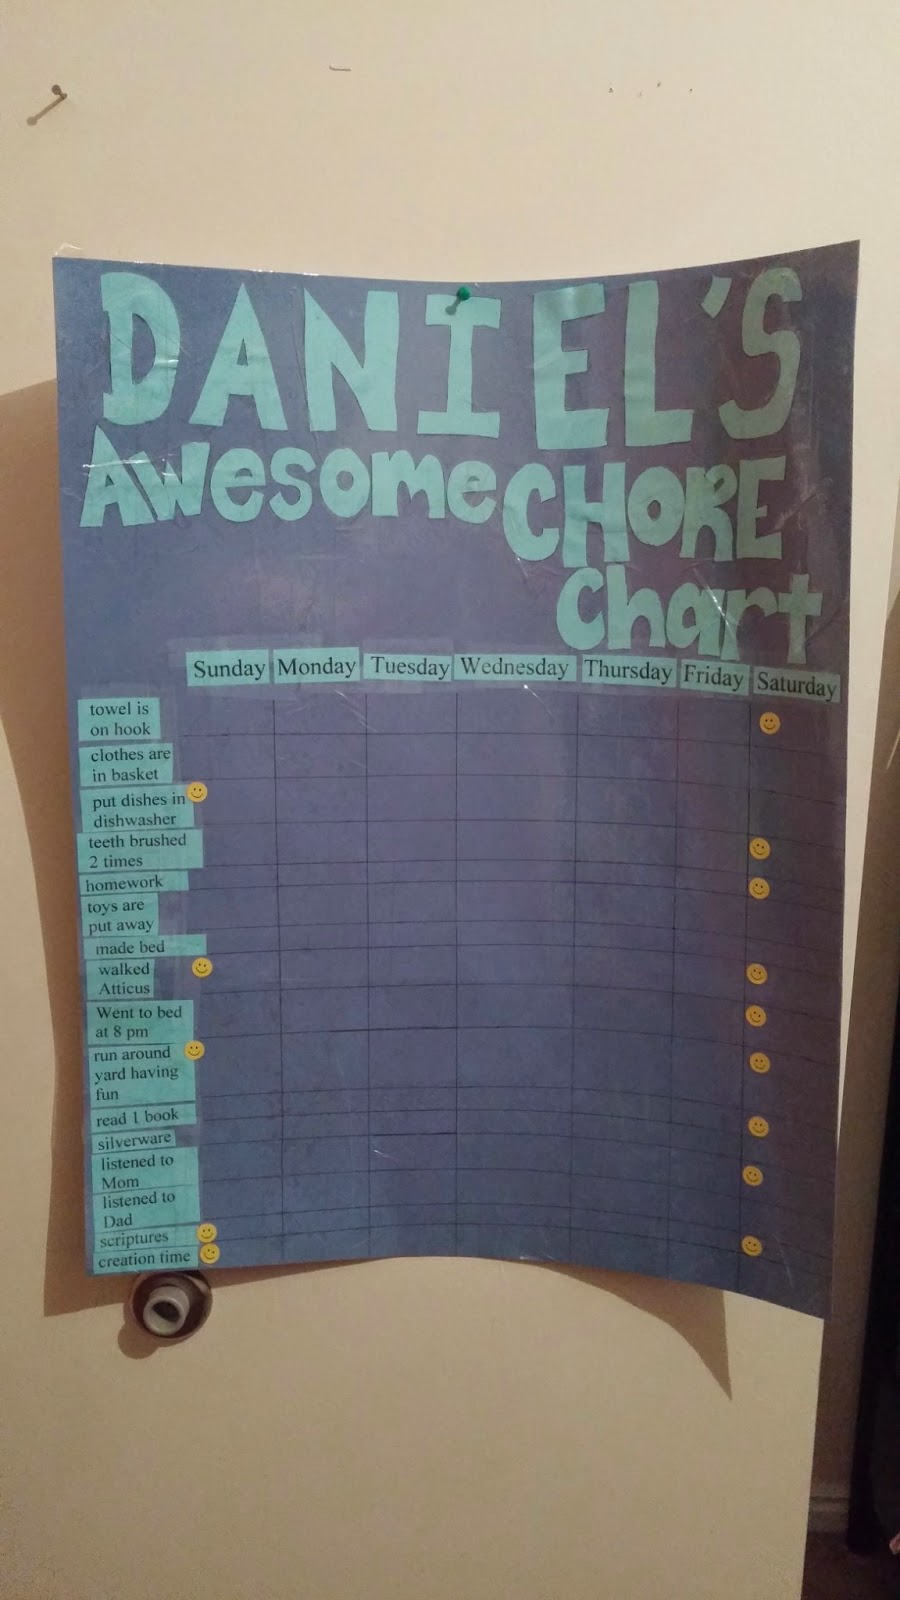 DANIEL'S
Awesome CHORE
Chart
Sunday Monday Tuesday Wednesday Thursday Friday Saturday
towel is
on hook
clothes are
in basket
put dishes in
dishwasher
teeth brushed
2 times
homework
toys are
put away
made bed
walked
Atticus
Went to bed
at 8 pm
run around
yard having
fun
read 1 book
silverware
listened to
Mom
listened to
Dad
scriptures
creation time